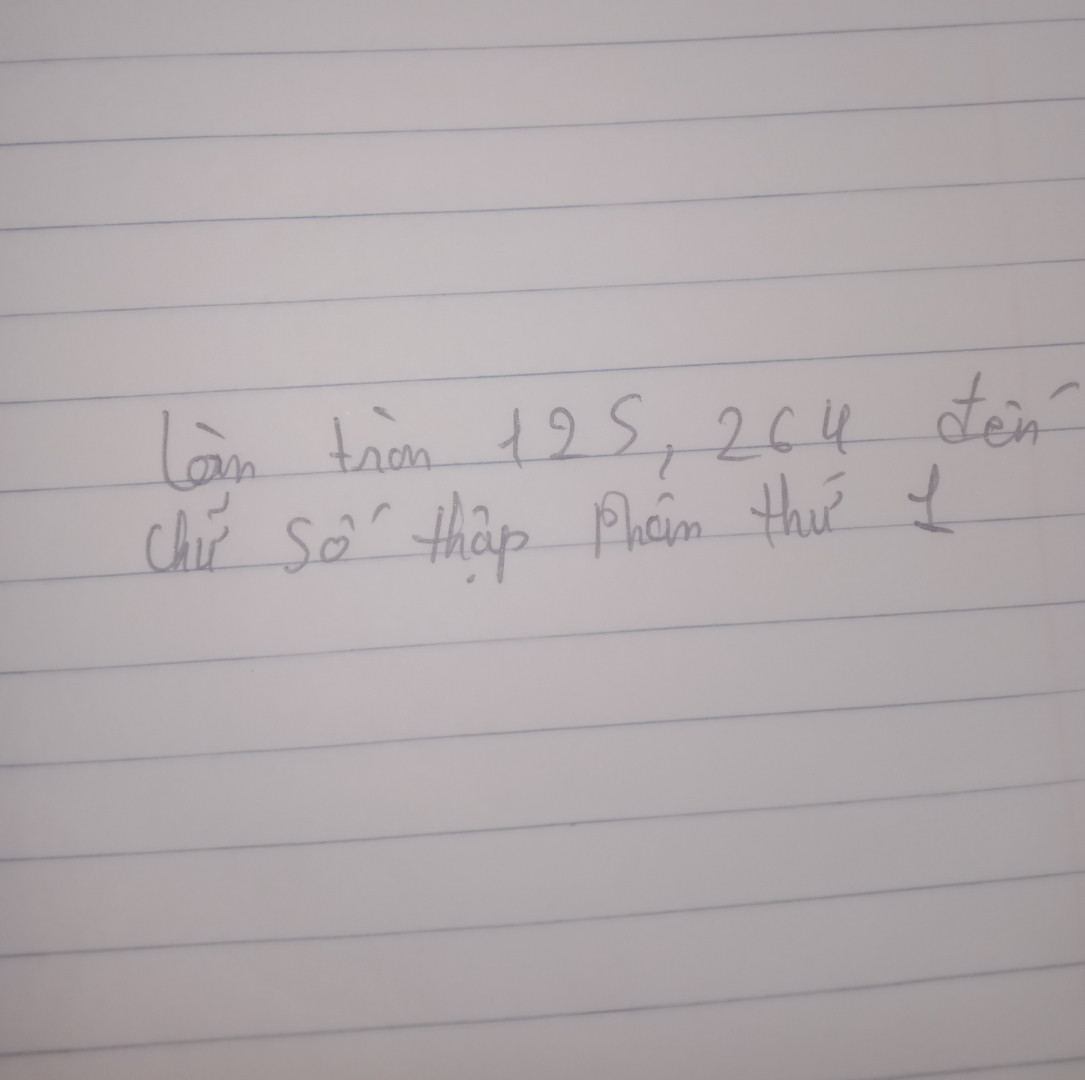 làm tròn 125,264 đến
chữ số thập phân thứ 1